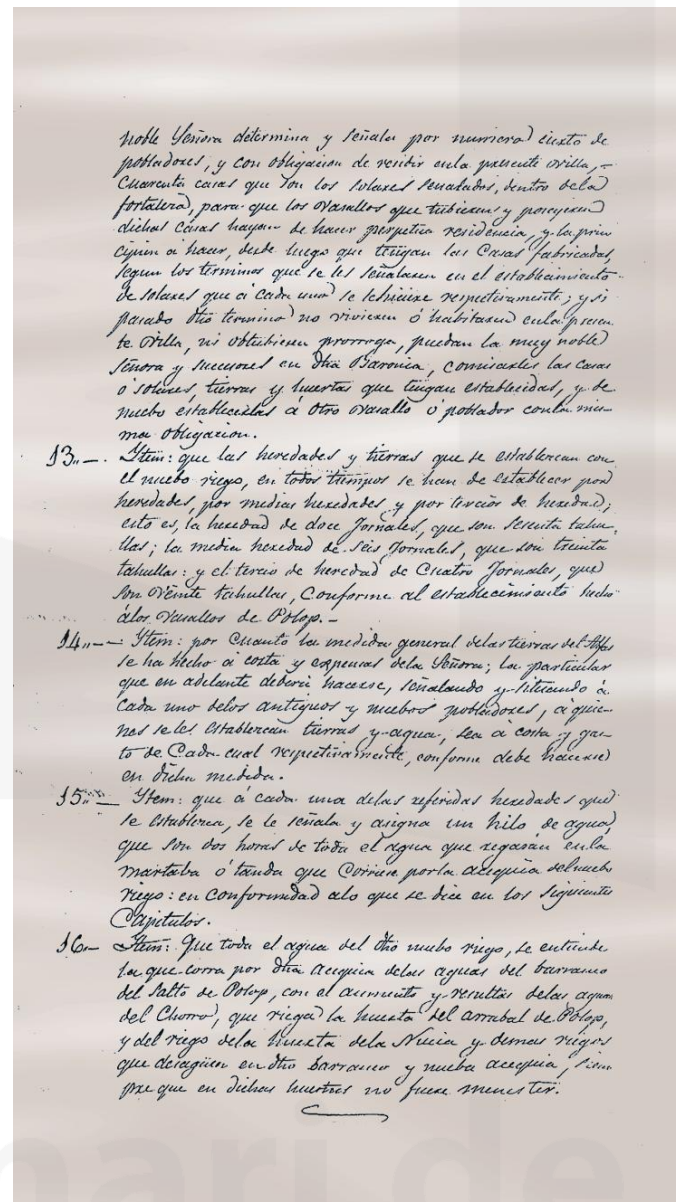 noble Señora determina y señala por numero cierto de
pobladores, y con obligacion de residir enla presente villa, =
Cuarenta casas que son los solares señalados, dentro dela
fortaleza, para que los Vasallos que tubieren y poseyeren
dichas casas hayan de hacer perpetua residencia, y la prin
cipien á hacer, desde luego que tengan las Casas fabricadas,
segun los terminos que se les señalaren en el establecimiento
de solares que á cada uno se les hiciere respectivamente; y si
pasado dho termino no vivieren ó habitaren enla presen
te Villa, ni obtubieren prorroga, puedan la muy noble
Señora y succesores en dha Baronia, comisarles las casas
ó solares, tierras y huertas que tengan establecidas, y de
nuebo establecerlas á otro vasallo ó poblador conla mis-
ma obligacion.
13,,—. Item: que las heredades y tierras que se establezcan con
el nuebo riego, en todos tiempos se han de establecer por
heredades, por medias heredades y por tercios de heredad;
esto es, la heredad de doce Jornales, que son sesenta tahu-
llas; la media heredad de seis Jornales, que son treinta
tahullas: y el tercio de heredad de Cuatro Jornales, que
son Veinte tahullas, Conforme al establecimiento hecho
álos Vasallos de Polop.-
14,,—- Item: por cuanto la medida general delas tierras del Alfas
se ha hecho á costa y expensas dela Señora; la particular
que en adelante deberá hacerse, señalando y situando á
Cada uno delos antiguos y nuebos pobladores, á quie-
nes seles establezcan tierras y agua, sea á costa y gas-
to de Cada cual respectivamente, conforme debe hacerse
en dicha medida.
15,,— Item: que á cada una delas referidas heredades que
se establezca, se le señala y asigna un hilo de agua,
que son dos horas de toda el agua que regarán enla
martaba ó tanda que Corriere porla acequia delnuebo
riego: en conformidad alo que se dice en los siguientes
Capitulos.
16,,— Item: Que toda el agua del dho nuebo riego, se entiende
la que corra por dha acequia delas aguas del barranco
del Salto de Polop, con el aumento y resultas delas aguas
del Chorro, que riega la huerta del arrabal de Polop,
y del riego dela huerta dela Nucia y demas riegos
que desagüen en dho barranco y nueba acequia, siem
pre que en dichas huertas no fuere menester.